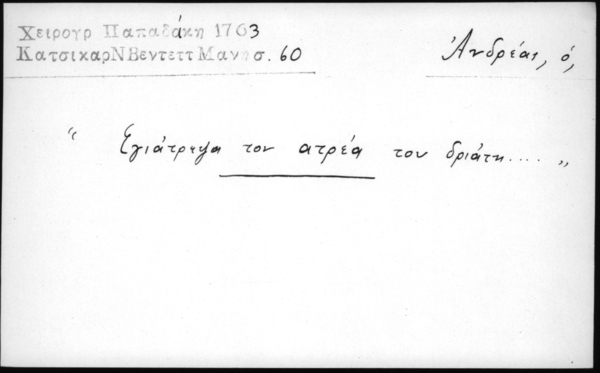 Χειρουρ Παπαδάκη 1763
ΚατσικαρΝΒεντεττΜανησ. 60
Ἀνδρέας, ὁ,
" Ἐγιάτρεψα τον ατρέα του δριάτη.... "